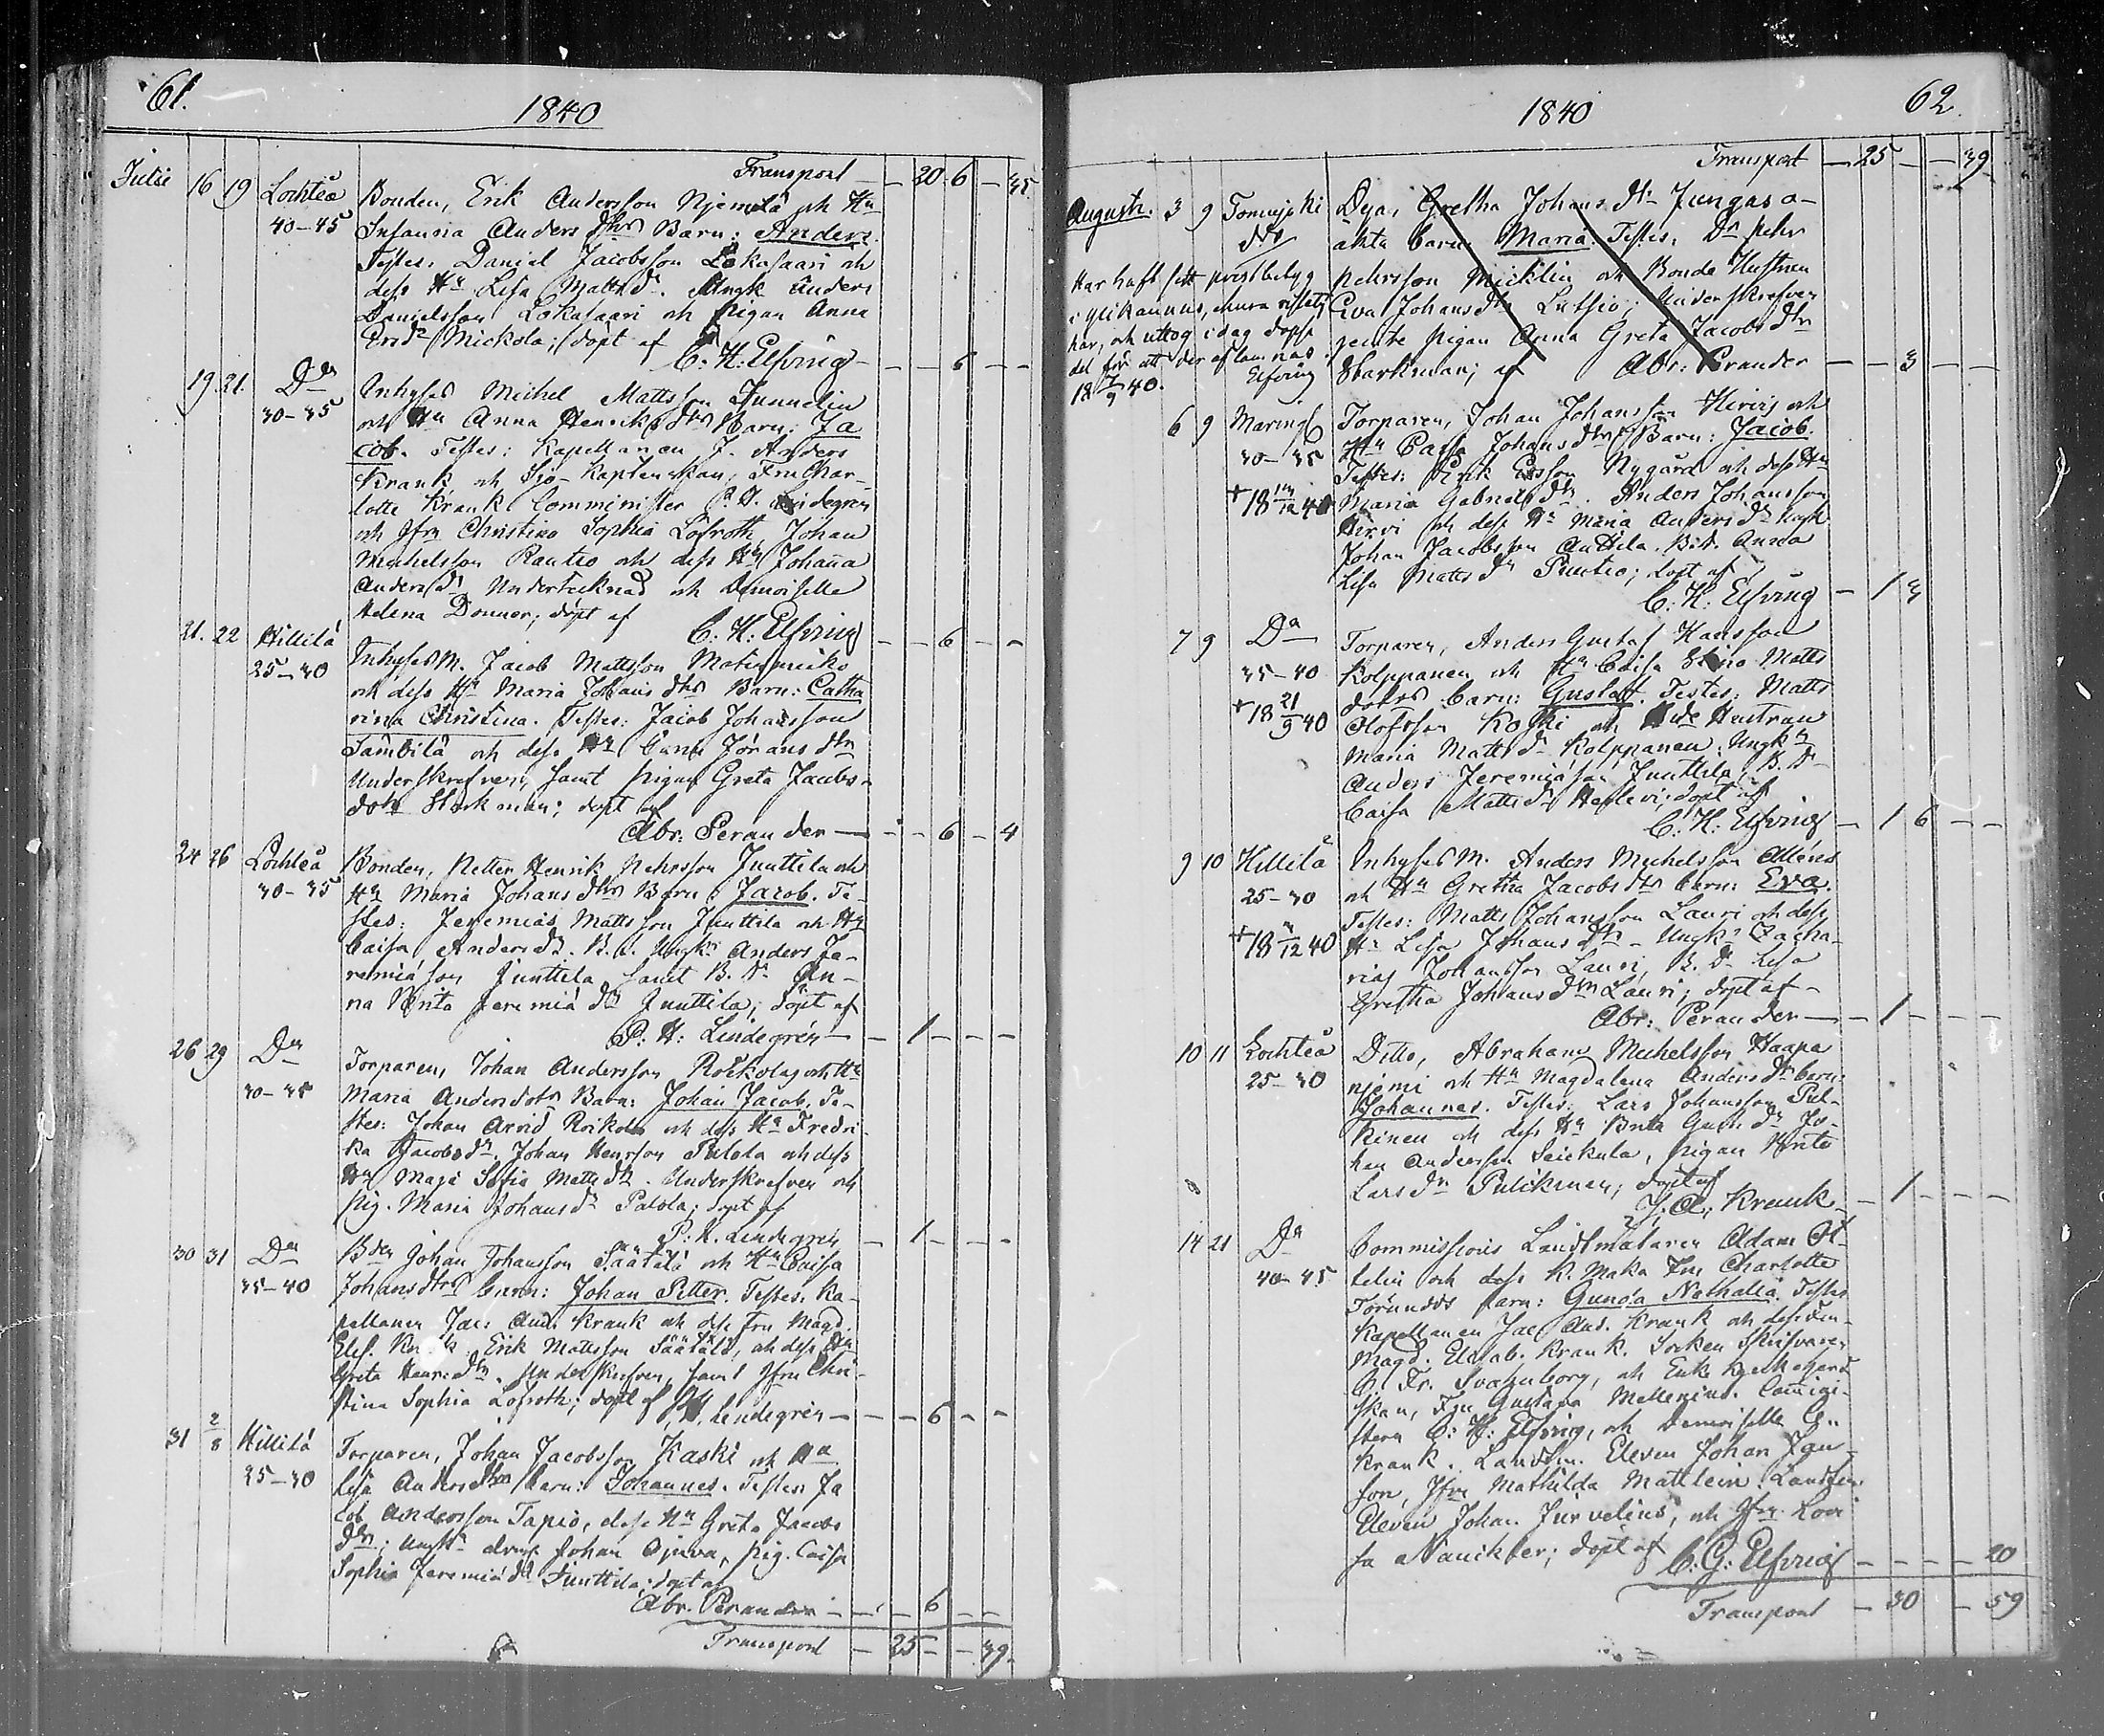 61.
1840
Transport — 20 6 — 35
Julii 16 19 Lochteå Bonden, Erik Andersson Njemelä och Hu
40-45 Susanna Anders dtrs Barn: Anders.
Testes: Daniel Jacobsson Lokasaari och
dess Hu Lisa Matts dr. Ungk Anders
Danielsson Lokasaari och pigan Anna
Mickola; döpt af
C. H. Elfving — — 6 — —
19 21. Do Inhyses Michel Mattsson Junnelin
30-35 och Hu Anna Henriks dtrs Barn: Ja
cob. Testes: Kapellanen J. Anders
Krank och Sjö-Kaptenskan, Fru Char-
lotte Krank Comminister P. H. Lindegren
och Jfru Christina Sophia Löfroth, Johan
Michelsson Rautio och dess Hu Johanna
Anders dr Undertecknad och Demoiselle
Helena Donner; döpt af
C. H. Elfving — — 6 — —
21. 22 Hillilä Inhyses M. Jacob Mattsson
25-30 och dess Hu Maria Johans dtrs Barn: Catha
rina Christina. Testes: Jacob Johansson
Sämbilä och dess Hu Görans dtr
Underskrefven, samt pigan Greta Jacobs-
dotr Starkman; döpt af
Abr. Perander — — 6 — 4
24 26 Lochteå Bonden, Petter Henrik Pehrsson Junttila och
30-35 Hu Maria Johans dtrs Barn Jacob. Te-
stes: Jeremias Mattsson Junttila och Hu
Caisa Anders dr. Ungk. Anders Je-
remiasson Junttila samt B. dr An-
na Brita Jeremiæ dr Junttila; döpt af
P. H: Lindegrén — 1 — — —
26 29 Do Torparen, Johan Andersson Roikola och Hu
30-35 Maria Andersdotrs Barn: Johan Jacob. Te-
stes: Johan Arvid Roikola och dess Hu Fredri-
ka Jacobs dr. Johan Henrsson Palola och dess
Hu Maja Sofia Matts dr. Underskrefven och
Pig. Maria Johans dr Palola; döpt af
P. H. Lindegrén — 1 — — —
30 31 Do Bden Johan Johansson Säätälä och Hu Caisa
35-40 Johansdtrs barn: Johan Petter. Testes: Ka-
pellanen Jac: And. Krank och dess Fru Magd.
Elis. Krank. Erik Mattsson Säätälä, och dess Hu
Greta Henrs dtr. Underskrefven, samt Jfru Chri-
stina Sophia Löfroth; döpt af P. H. Lindegrén — — 6 — —
31 2/8 Hillilä Torparen, Johan Jacobsson Kaski och Hu
25-30 Lisa Anders dtrs barn: Johannes. Testes: Ja
cob Andersson Tapio, dess Hu Greta Jacobs
dtr; Johan Ojuva, pig. Caisa
Sophia Jeremiæ dr Junttila; döpt af
Abr. Perander — — 6 — —
Transport — 25 — — 39.
1840
62.
Transport — 25 — — 39
Augusti. 3 9 Tomujoki Deja, Gretha Johans dtr Jungas o-
äkta barn Maria. Testes: Dr Pehr
Har haft sitt
Pehrsson Micklin och Bonde Hustrun
Eva Johansdtr Undenskrefven
här, och uttog idag
jemte pigan Anna Greta Jacobs dtr
del för att der aflemnas
Elfving
18 7/9 40.
Starkman; af Abr: Perander — — 3 — —
6 9 Marings Torparen, Johan Johansson Hirvis och
30-35 Hu Caisa Johans dtrs Barn: Jacob.
Testes: Erik Ersson Nygård och dess Hu
+18 /12 40 Maria Gabriels dtr. Anders Johansson
Hirvi och dess Hu Maria Anders dr Ungk
Johan Jacobsson Anttila. B.d. Anna
Lisa Matts dr Puutio; döpt af
C: H: Elfving — 1 3
7 9 Do Torparen, Anders Gustaf Hansson
35-40 Kolppanen och Hu Caisa Stina Matts
dotrs barn: Gustaf. Testes: Matts
+18 21/9 40 Olofsson Koski och
Maria Matts dr Kolppanen. Ungk
Anders Jeremiasson Junttila, B. dr
Caisa Matts dr döpt af
C. H: Elfving — 1 6 — —
9 10 Hillilä Inhyses M. Anders Michelsson
25-30 och Hu Gretha Jacobs dtr barn: Eva.
Testes: Matts Johansson Lauri och dess
+18 /12 40 Hu Lisa Johans dtr - Ungk. Zacha-
rias Johansson Lauri, B. dr Lisa
Gretha Johans dtr Lauri; döpt af
Abr: Perander — 1 — — —
10 11 Lochteå Ditto, Abraham Michelsson Haapa
25-30 njemi och Hu Magdalena Anders dtr barn:
Johannes. Testes: Lars Johansson Pul-
kinen och dess Hu Brita dr Jo-
han Andersson pigan Brita
Lars dr döpt af
J. A. Krank — 1 — — —
14 21 Do Commissions Landtmätaren Adam
40-45 och dess K. Maka Fru Charlotte
Törnudds barn: Gunda Nathalia. Testes
Kapellanen Jac And. Krank och dess Fru
Magd. Elisab. Krank. Socken Skrifvaren
C. Fr. Svahnborg, och
skan, Fru Gustava Mellenius. Commini-
stern C: H: Elfving, och Demoiselle
Krank. Landtm. Eleven Johan Jan-
son, Jfru Mathilda Mattlein. Landtm.
Eleven Johan Jurvelius, och Jfru Lovi
sa döpt af C. G. Elfving — — — — 20
Transport — 30 — 59